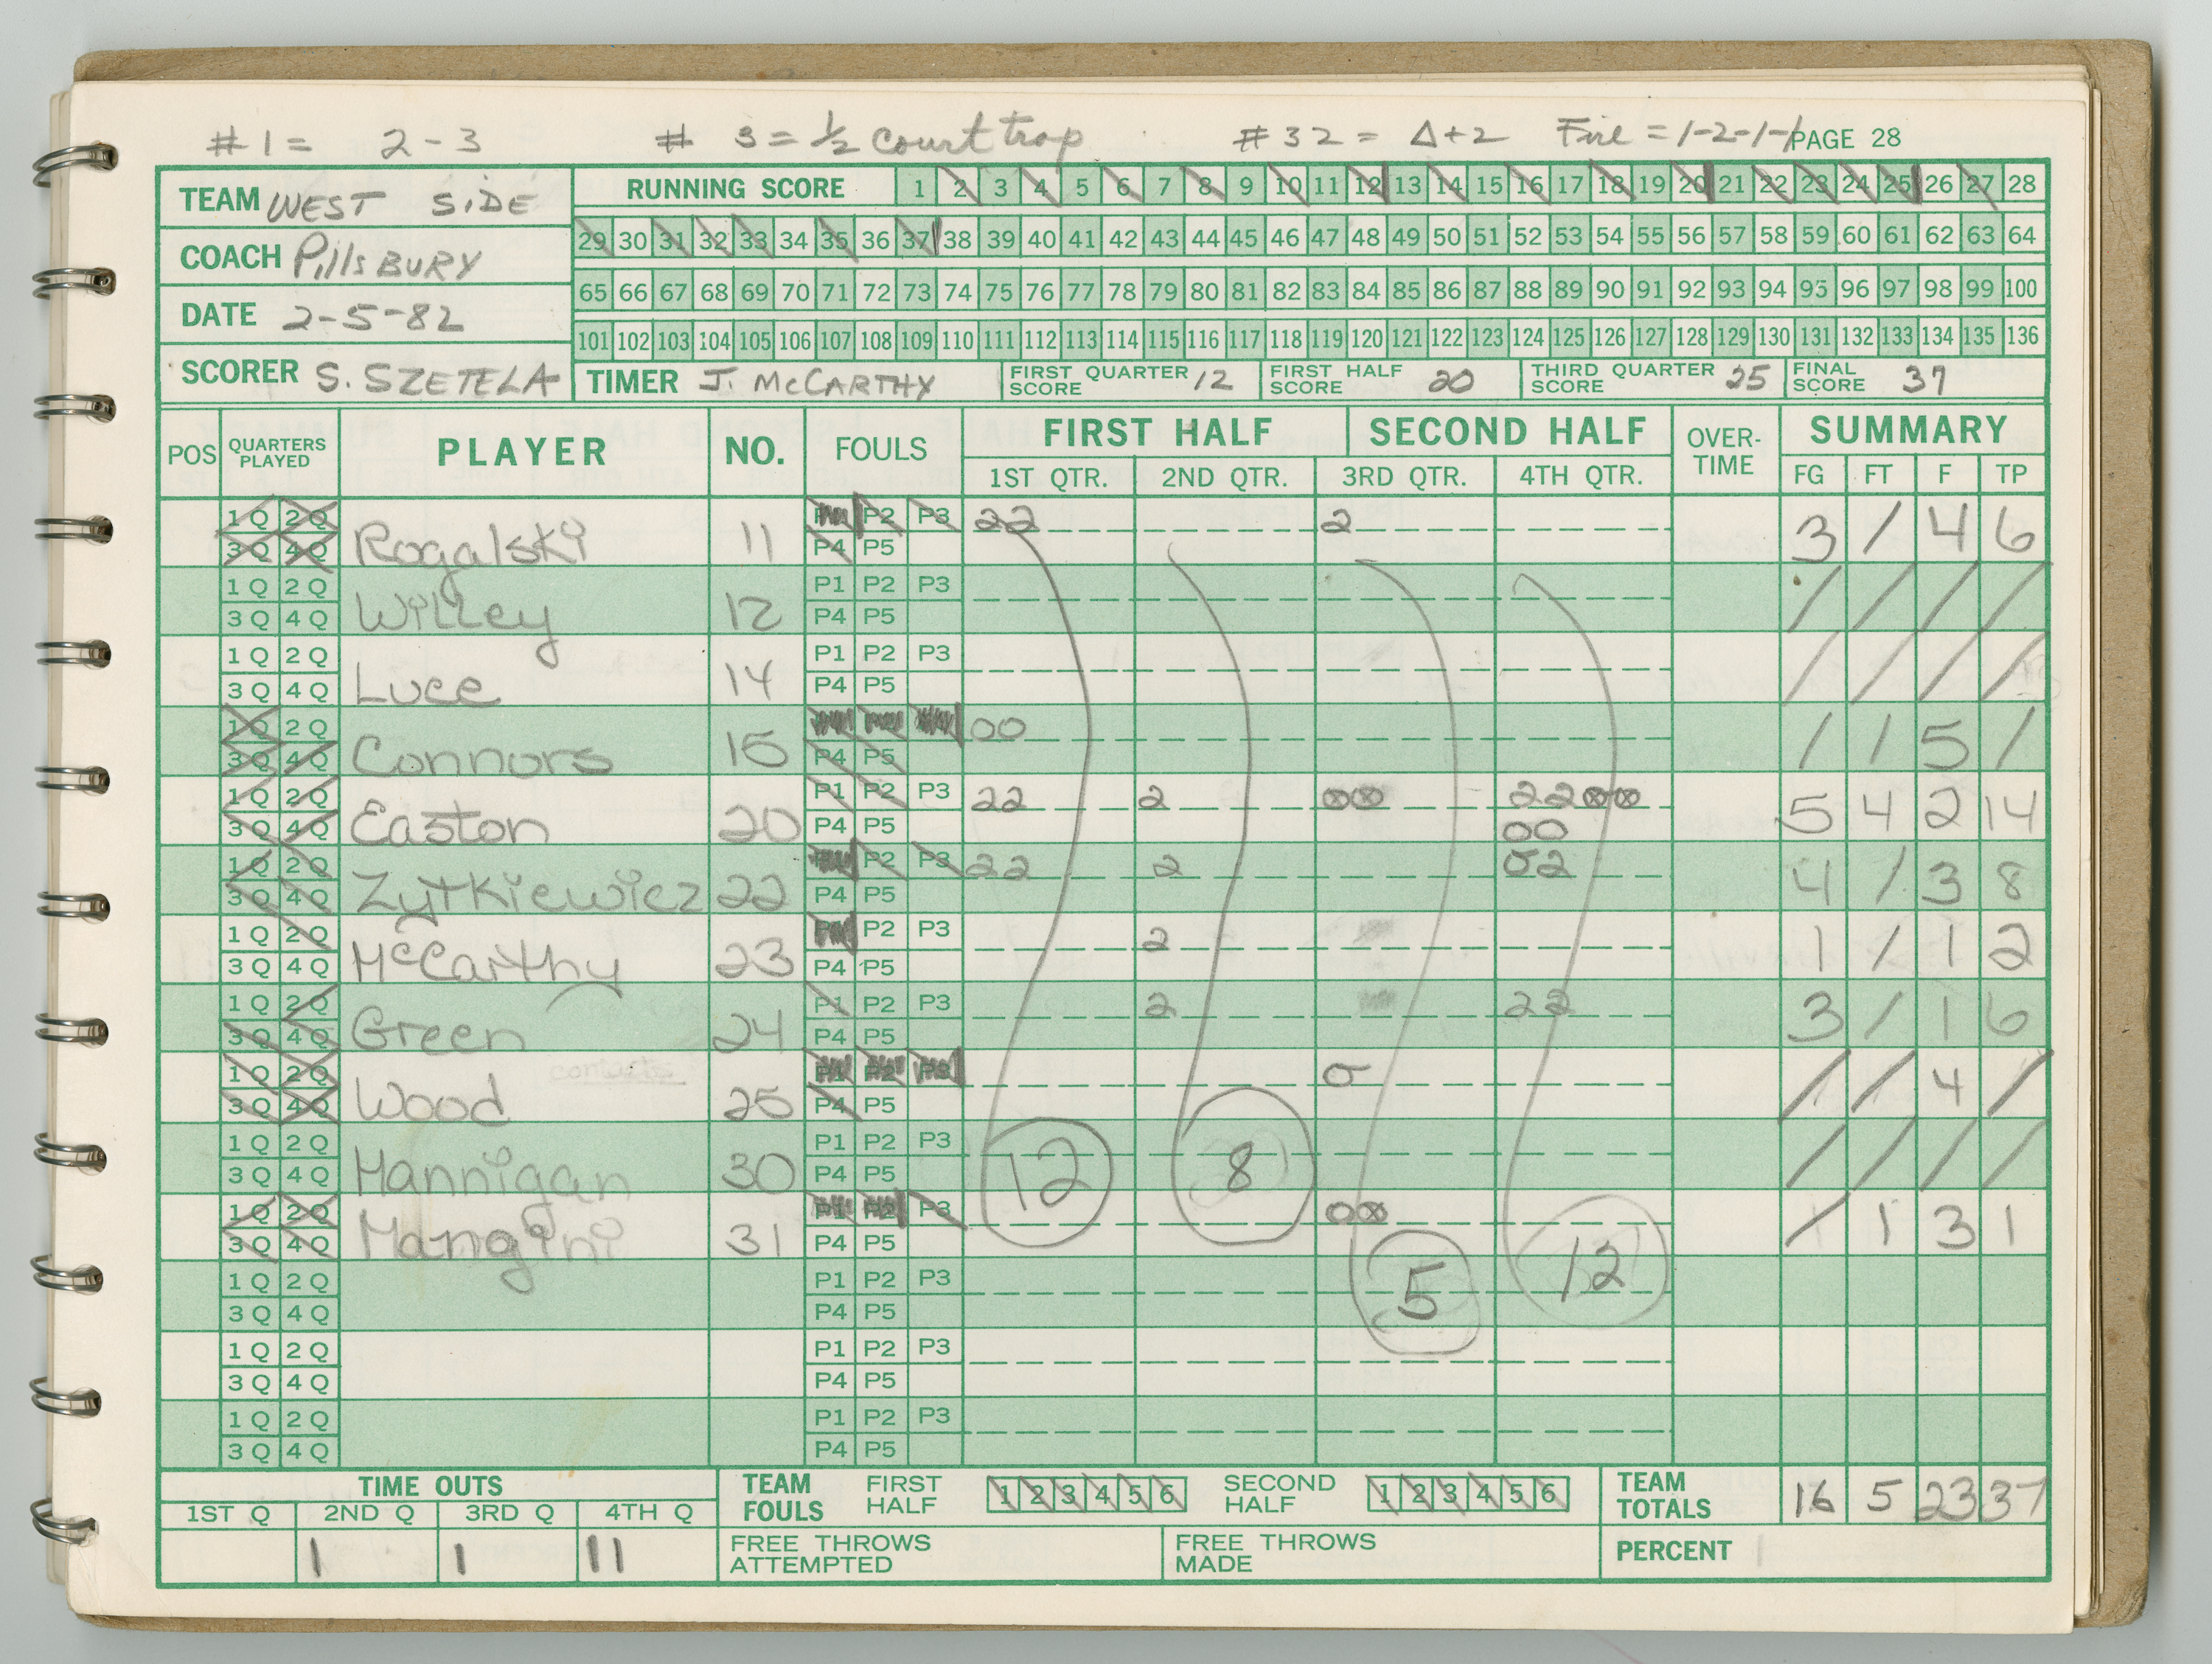 #1 = 2-3 # 3 = ½ court trap #32 = Δ+2 Fire = 1-2-1-1 PAGE 28
TEAM WEST SiDE
COACH PillsBURY
DATE 2-5-82
SCORER S. SZETELA
RUNNING SCORE 1 2 3 4 5 6 7 8 9 10 11 12 13 14 15 16 17 18 19 20 21 22 23 24 25 26 27 28
29 30 31 32 33 34 35 36 37 38 39 40 41 42 43 44 45 46 47 48 49 50 51 52 53 54 55 56 57 58 59 60 61 62 63 64
65 66 67 68 69 70 71 72 73 74 75 76 77 78 79 80 81 82 83 84 85 86 87 88 89 90 91 92 93 94 95 96 97 98 99 100
101 102 103 104 105 106 107 108 109 110 111 112 113 114 115 116 117 118 119 120 121 122 123 124 125 126 127 128 129 130 131 132 133 134 135 136
TIMER J. McCARTHY FIRST QUARTER SCORE 12 FIRST HALF SCORE 20 THIRD QUARTER SCORE 25 FINAL SCORE 37
POS QUARTERS PLAYED PLAYER NO. FOULS FIRST HALF SECOND HALF OVER-TIME SUMMARY
1ST QTR. 2ND QTR. 3RD QTR. 4TH QTR. FG FT F TP
1Q 2Q P1 P2 P3 22 2
3Q 4Q Rogalski 11 P4 P5 3 / 4 6
1Q 2Q P1 P2 P3
3Q 4Q Willey 12 P4 P5 / / / /
1Q 2Q P1 P2 P3
3Q 4Q Luce 14 P4 P5 / / / /
1Q 2Q 00
3Q 4Q Connors 15 P4 P5 / 1 5 /
1Q 2Q P1 P2 P3 22 2 00 2200
3Q 4Q Easton 20 P4 P5 00 5 4 2 14
1Q 2Q P1 P2 P3 22 2 02
3Q 4Q Zytkiewicz 22 P4 P5 4 / 3 8
1Q 2Q P1 P2 P3 2
3Q 4Q McCarthy 23 P4 P5 1 / 1 2
1Q 2Q P1 P2 P3 2 22
3Q 4Q Green 24 P4 P5 3 / 1 6
1Q 2Q P1 P2 P3 0
3Q 4Q Wood 25 P4 P5 / / 4 /
1Q 2Q P1 P2 P3
3Q 4Q Hannigan 30 P4 P5 12 8 / / / /
1Q 2Q P1 P2 P3 00
3Q 4Q Mangini 31 P4 P5 / 1 3 1
1Q 2Q P1 P2 P3
3Q 4Q P4 P5 5 12
1Q 2Q P1 P2 P3
3Q 4Q P4 P5
1Q 2Q P1 P2 P3
3Q 4Q P4 P5
TIME OUTS
1ST Q 2ND Q 3RD Q 4TH Q
1 1 11
TEAM FOULS FIRST HALF 1 2 3 4 5 6 SECOND HALF 1 2 3 4 5 6
TEAM TOTALS 16 5 23 37
FREE THROWS ATTEMPTED FREE THROWS MADE PERCENT